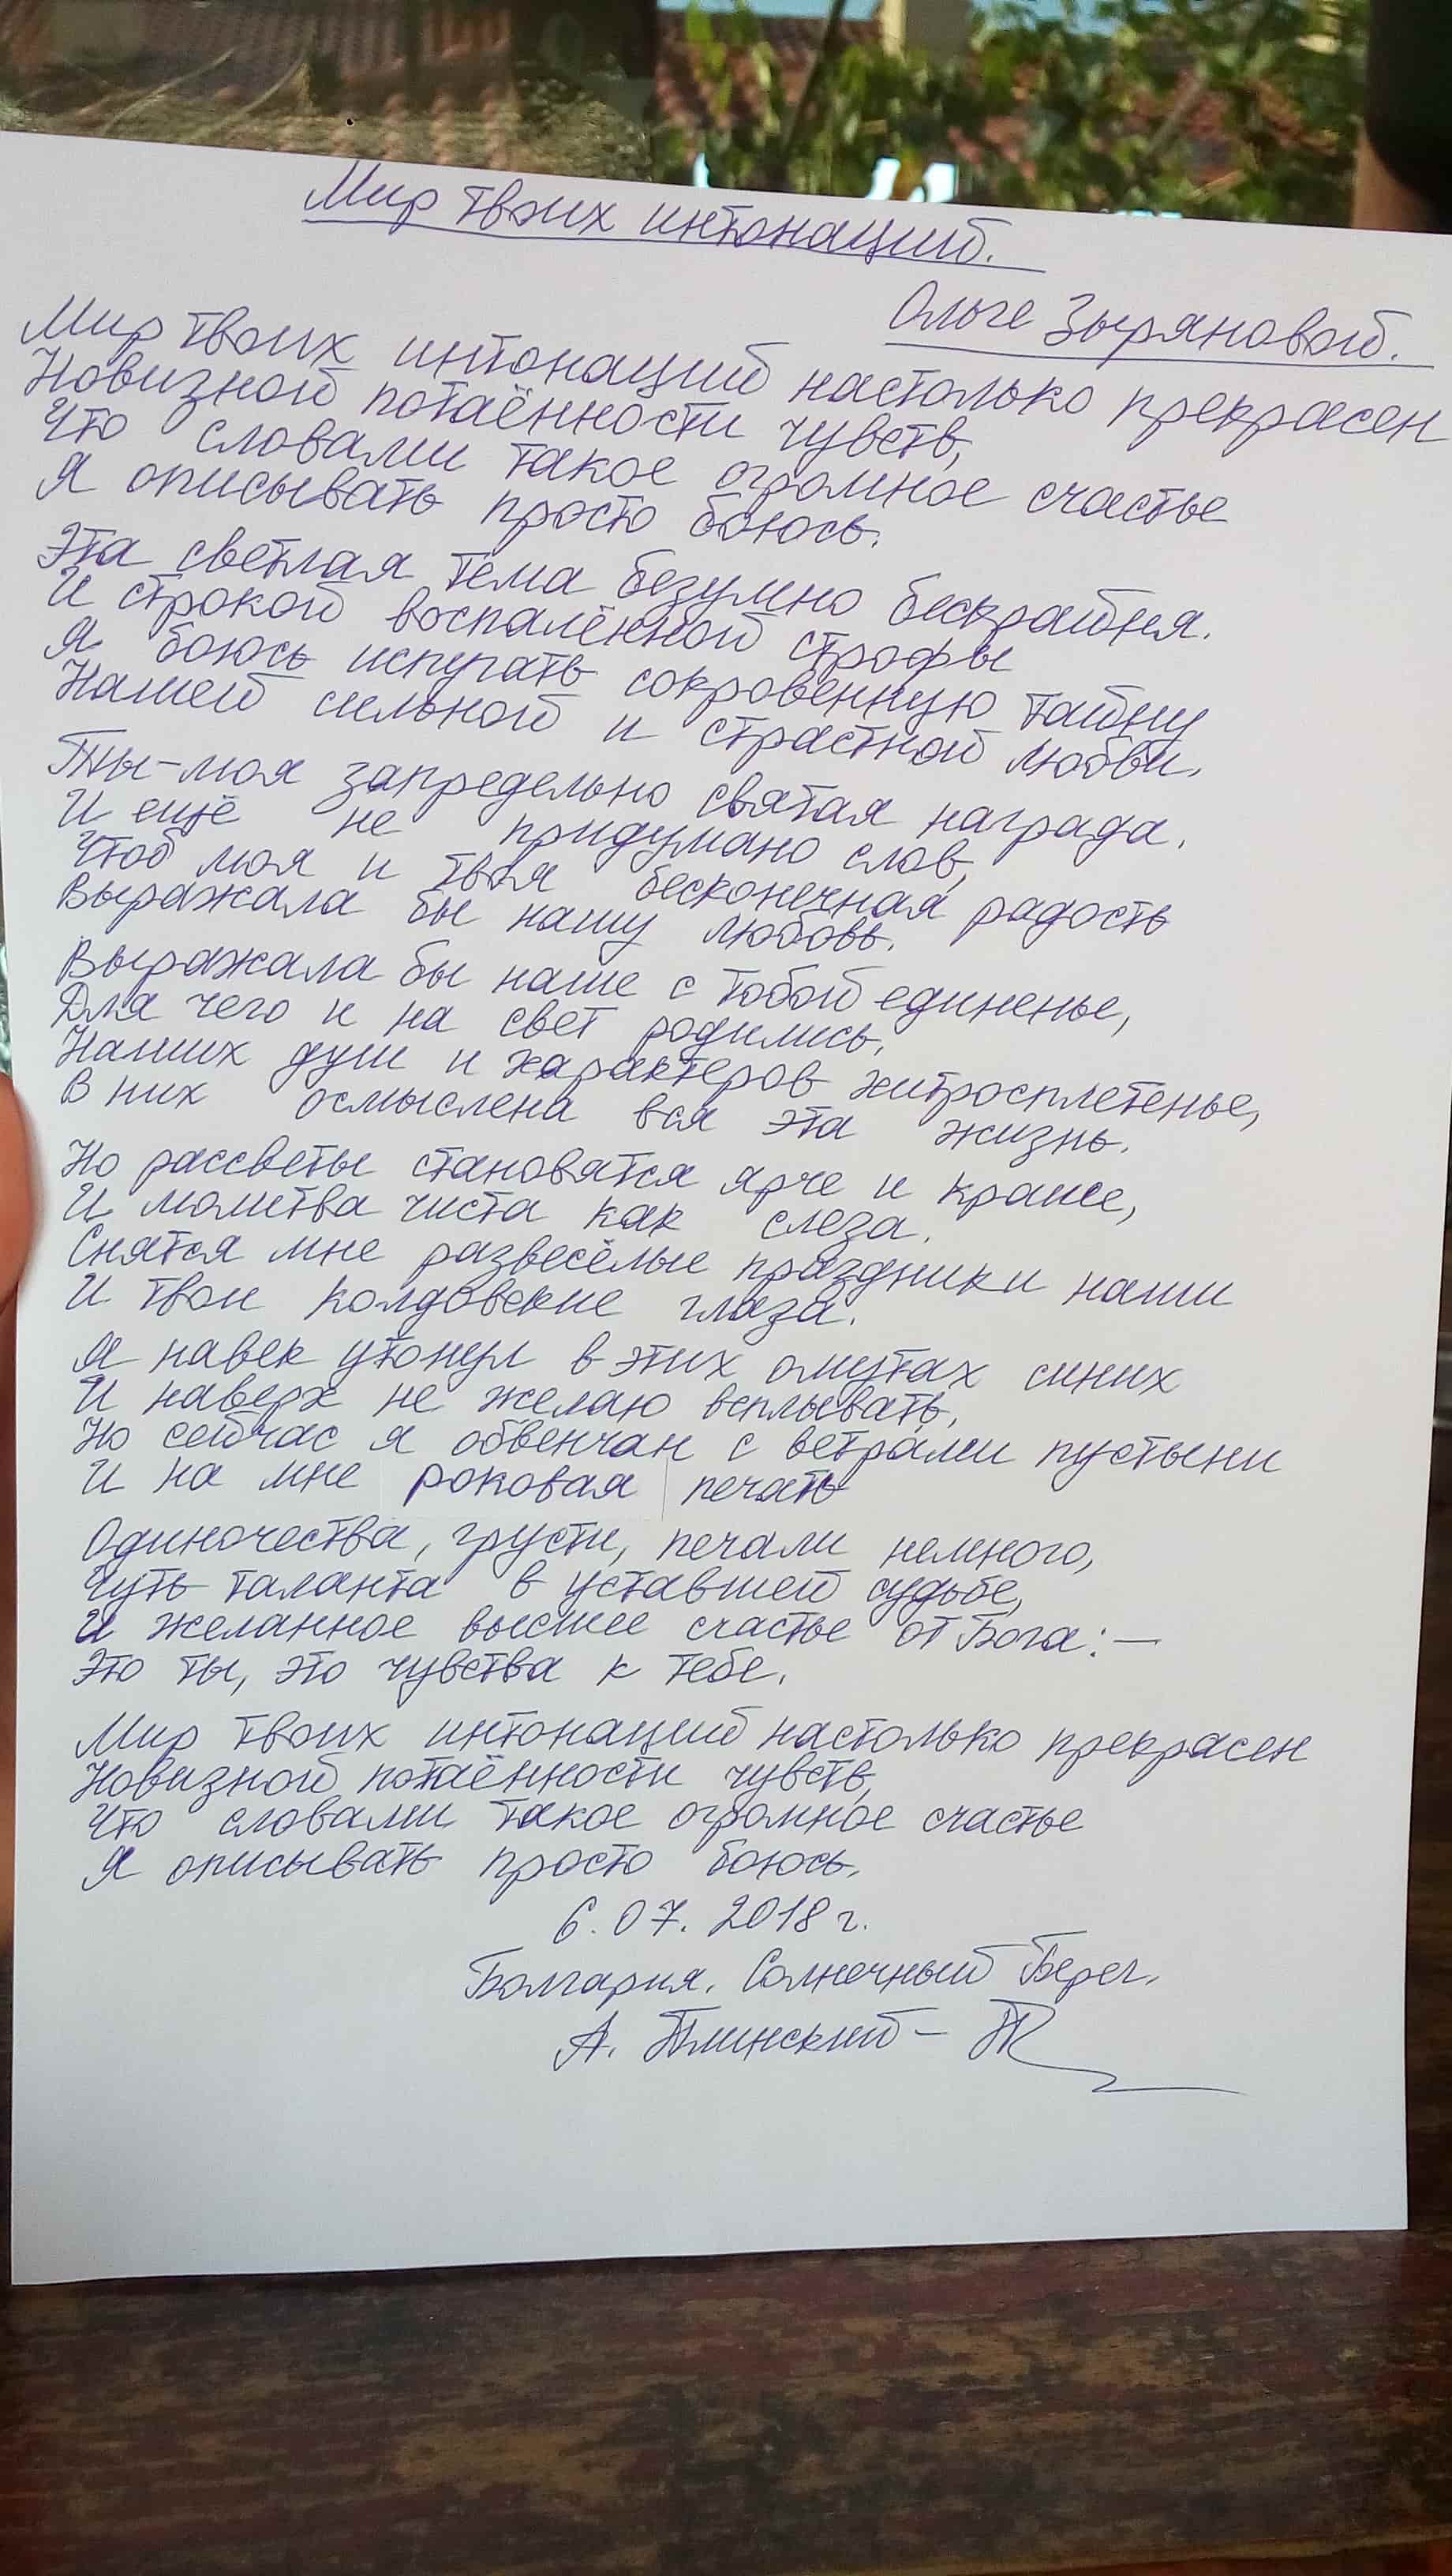 Мир твоих интонаций.
Ольге Зыряновой.
Мир твоих интонаций настолько прекрасен
Новизной потаённости чувств,
Что словами такое огромное счастье
Я описывать просто боюсь.
Эта светлая тема безумно бескрайняя.
И строкой воспалённой строфы
Я боюсь испугать сокровенную тайну
Нашей сильной и страстной любви.
Ты-моя запредельно святая награда.
И ещё не придумано слов,
Чтоб моя и твоя бесконечная радость
Выражала бы нашу любовь.
Выражала бы наше с тобой единенье,
Для чего и на свет родились.
Наших душ и характеров хитросплетенье,
В них осмыслена вся эта жизнь.
Но рассветы становятся ярче и краше,
И молитва чиста как слеза.
Снятся мне развесёлые праздники наши
И твои колдовские глаза.
Я навек утонул в этих омутах синих
И наверх не желаю всплывать,
Но сейчас я обвенчан с ветрами пустыни
И на мне роковая печать
Одиночества, грусти, печали немного,
Чуть таланта в уставшей судьбе,
И желанное высшее счастье от Бога: —
Это ты, это чувства к тебе.
Мир твоих интонаций настолько прекрасен
Новизной потаённости чувств,
Что словами такое огромное счастье
Я описывать просто боюсь.
6.07.2018 г.
Болгария. Солнечный Берег.
А. Плинский –